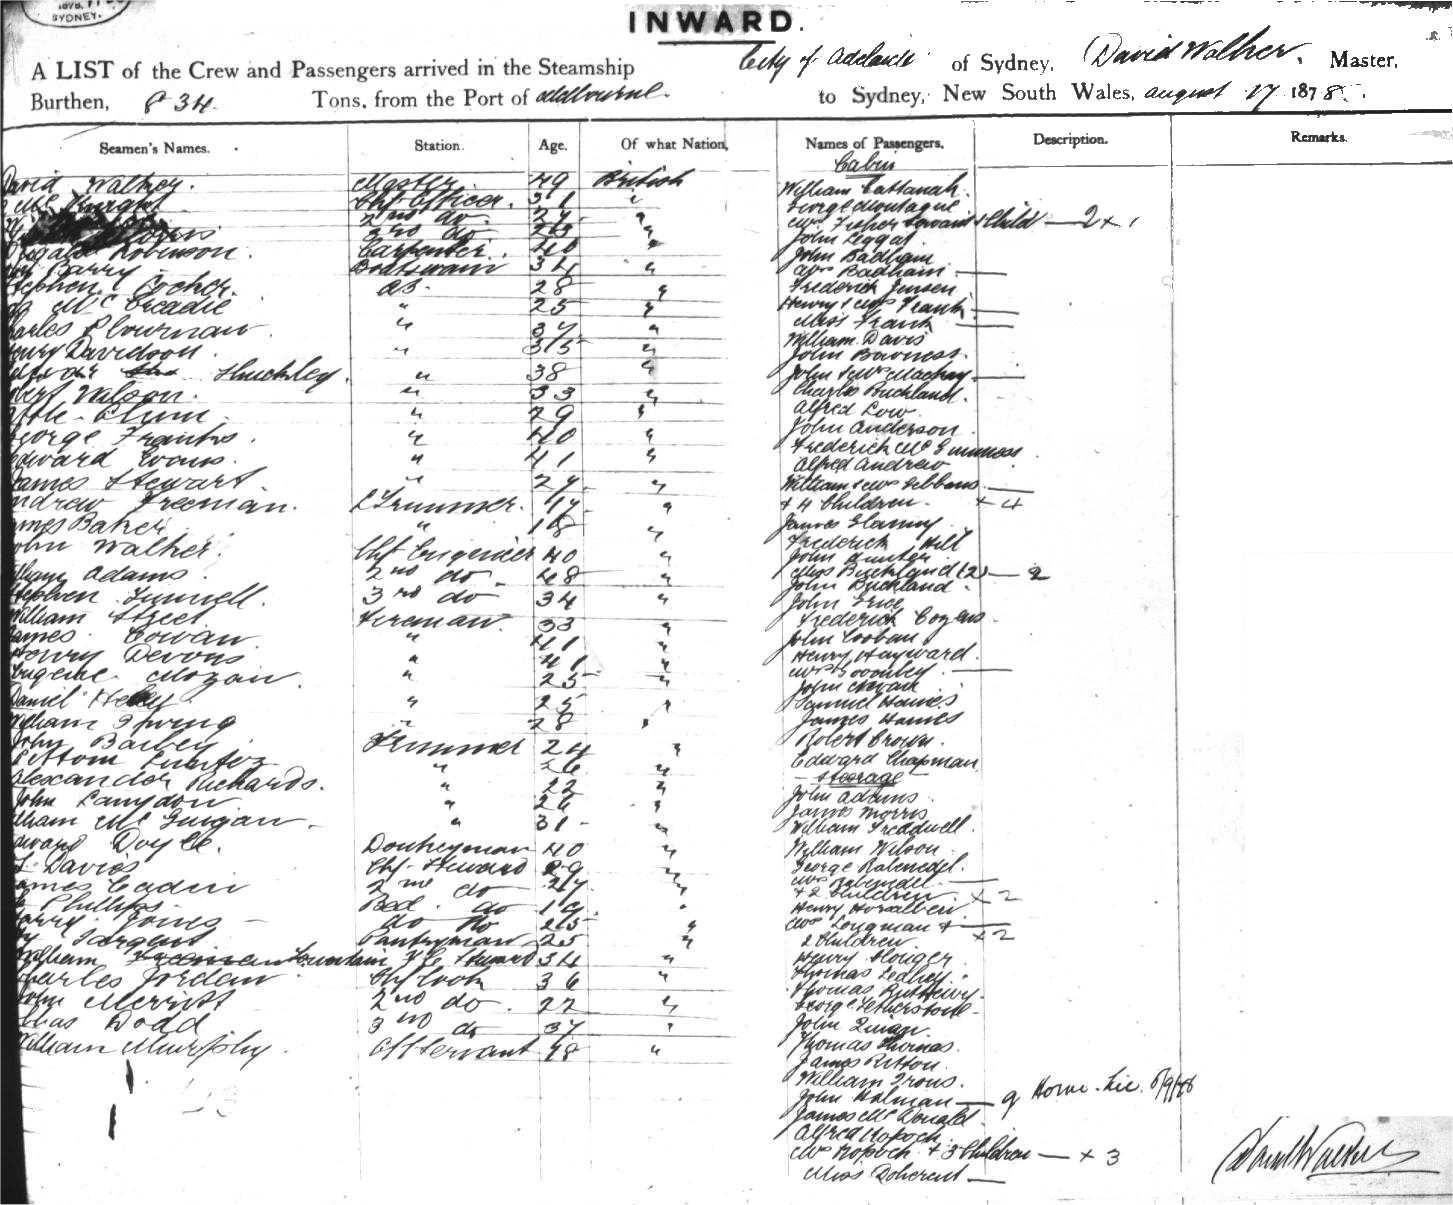 1878
SYDNEY.
INWARD.
A LIST of the Crew and Passengers arrived in the Steamship City of Adelaide of Sydney, David Walker, Master,
Burthen, 834 Tons, from the Port of Melbourne to Sydney, New South Wales, August 17 1878.
Seamen's Names. Station. Age. Of what Nation, Names of Passengers, Description. Remarks.
Cabin
David Walker Master 49 British William Cattanach
Chf Officer. 31 " George Montague
2nd do. 27 " Mrs Fisher Servant & Child — 2 × 1
3rd do 23 " John Leggat
Robinson. Carpenter. 40 " John Badham
Barry Boatswain 34 " Mrs Badham —
Stephen Cocher AB. 28 " Frederick Jensen
McCreadie " 25 " Henry & Mrs Frank —
Charles Plowman " 37 " Miss Frank —
Henry Davidson. " 35 " William Davis
Shuckley. " 38 " John Bowness.
Robert Wilson. " 33 " John & Mrs Mackay —
Plum " 29 " Charles Buckland.
George Franks. " 40 " Alfred Low.
Edward Evans. " 41 " John Anderson
James Stewart. " 27 " Frederick McGuinness
Andrew Freeman. L Trimmer. 47 " Alfred Andrew
James Baker " 18 " William & Mrs Gibbons —
John Walker. Chf Engineer 40 " + 4 Children. × 4
William Adams 2nd do. 48 " James
Stephen Tunnell. 3rd do 34 " Frederick Hill
William Street Fireman 33 " John Hunter
James Cowan " 41 " Miss Buckland (2) — 2
Henry Devons " 41 " John Buckland.
Eugene Mozan. " 25 " John Grice
Daniel Healy " 25 " Frederick Cozens
William Irving " 28 " John Cooban
John Bailey Trimmer 24 " Henry Hayward.
" 26 " Mrs —
Alexander Richards. " 22 " John
John Langdon " 26 " Samuel Hames
William McGuigan. " 31 " James Hames
Edward Doyle. Donkeyman 40 " Robert Brown.
Davis Chf. Steward 29 " Edward Chapman
James Eadin 2nd do 27 " Steerage
Phillips Bed. do 19 " John Adams
Harry Jones do do 25 " James Morris
Sargent Pantryman 25 " William Treadwell.
William Fountain F.C. Steward 34 " William Wilson
Charles Jordan Chf Cook 36 " George Rabenedel.
John Merritt 2nd do. 22 " Mrs Rabenedel —
Dodd 3rd do 37 " + 2 Children × 2
William Murphy Off Servant 48 " Henry
Mrs Longman & —
2 Children × 2
Henry
Thomas Ledley
Thomas
George Fetherstone
John Quinan
Thomas Thomas.
James Pitton.
William Irons.
John Halman —
James McDonald
Alfred Hopoch
Mrs Hopoch + 3 Children — × 3
Miss Doherent —
David Walker